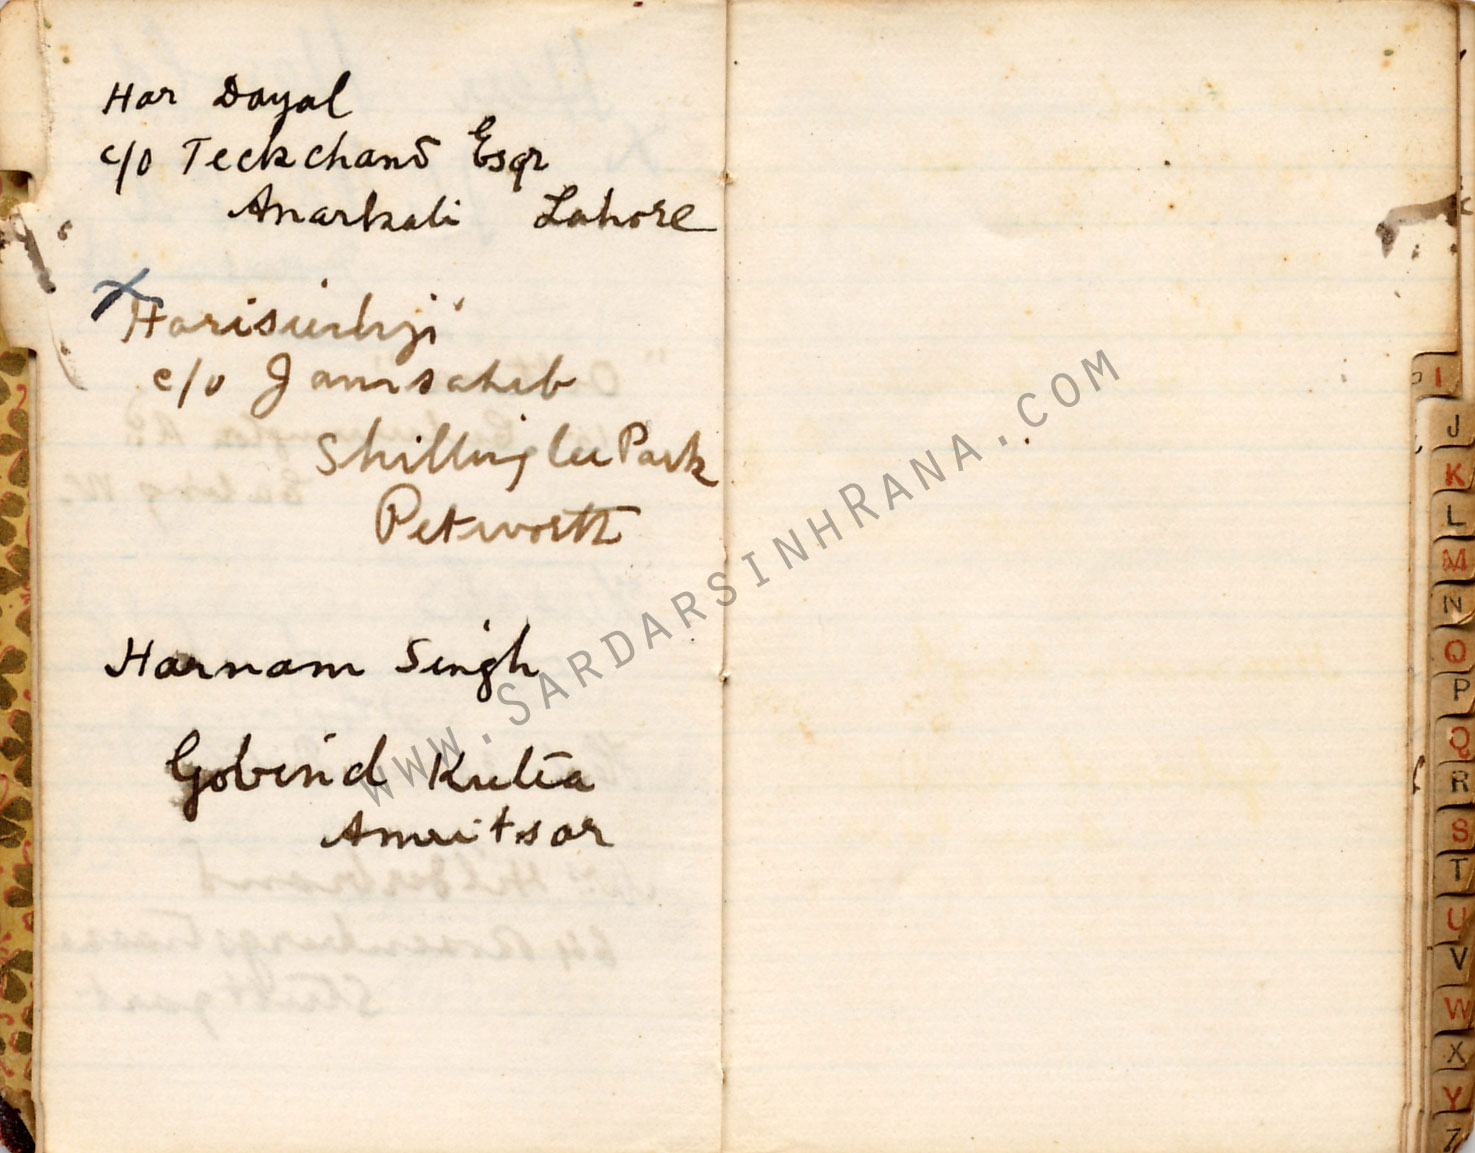 Har Dayal
c/o Teckchand Esqr
Anarkali Lahore
X Harisinhji
c/o Jamsaheb
Shillinglee Park
Petworth
Harnam Singh
Gobind Kutia
Amritsar
WWW.SARDARSINHRANA.COM
I
J
K
L
M
N
O
P
Q
R
S
T
U
V
W
X
Y
Z